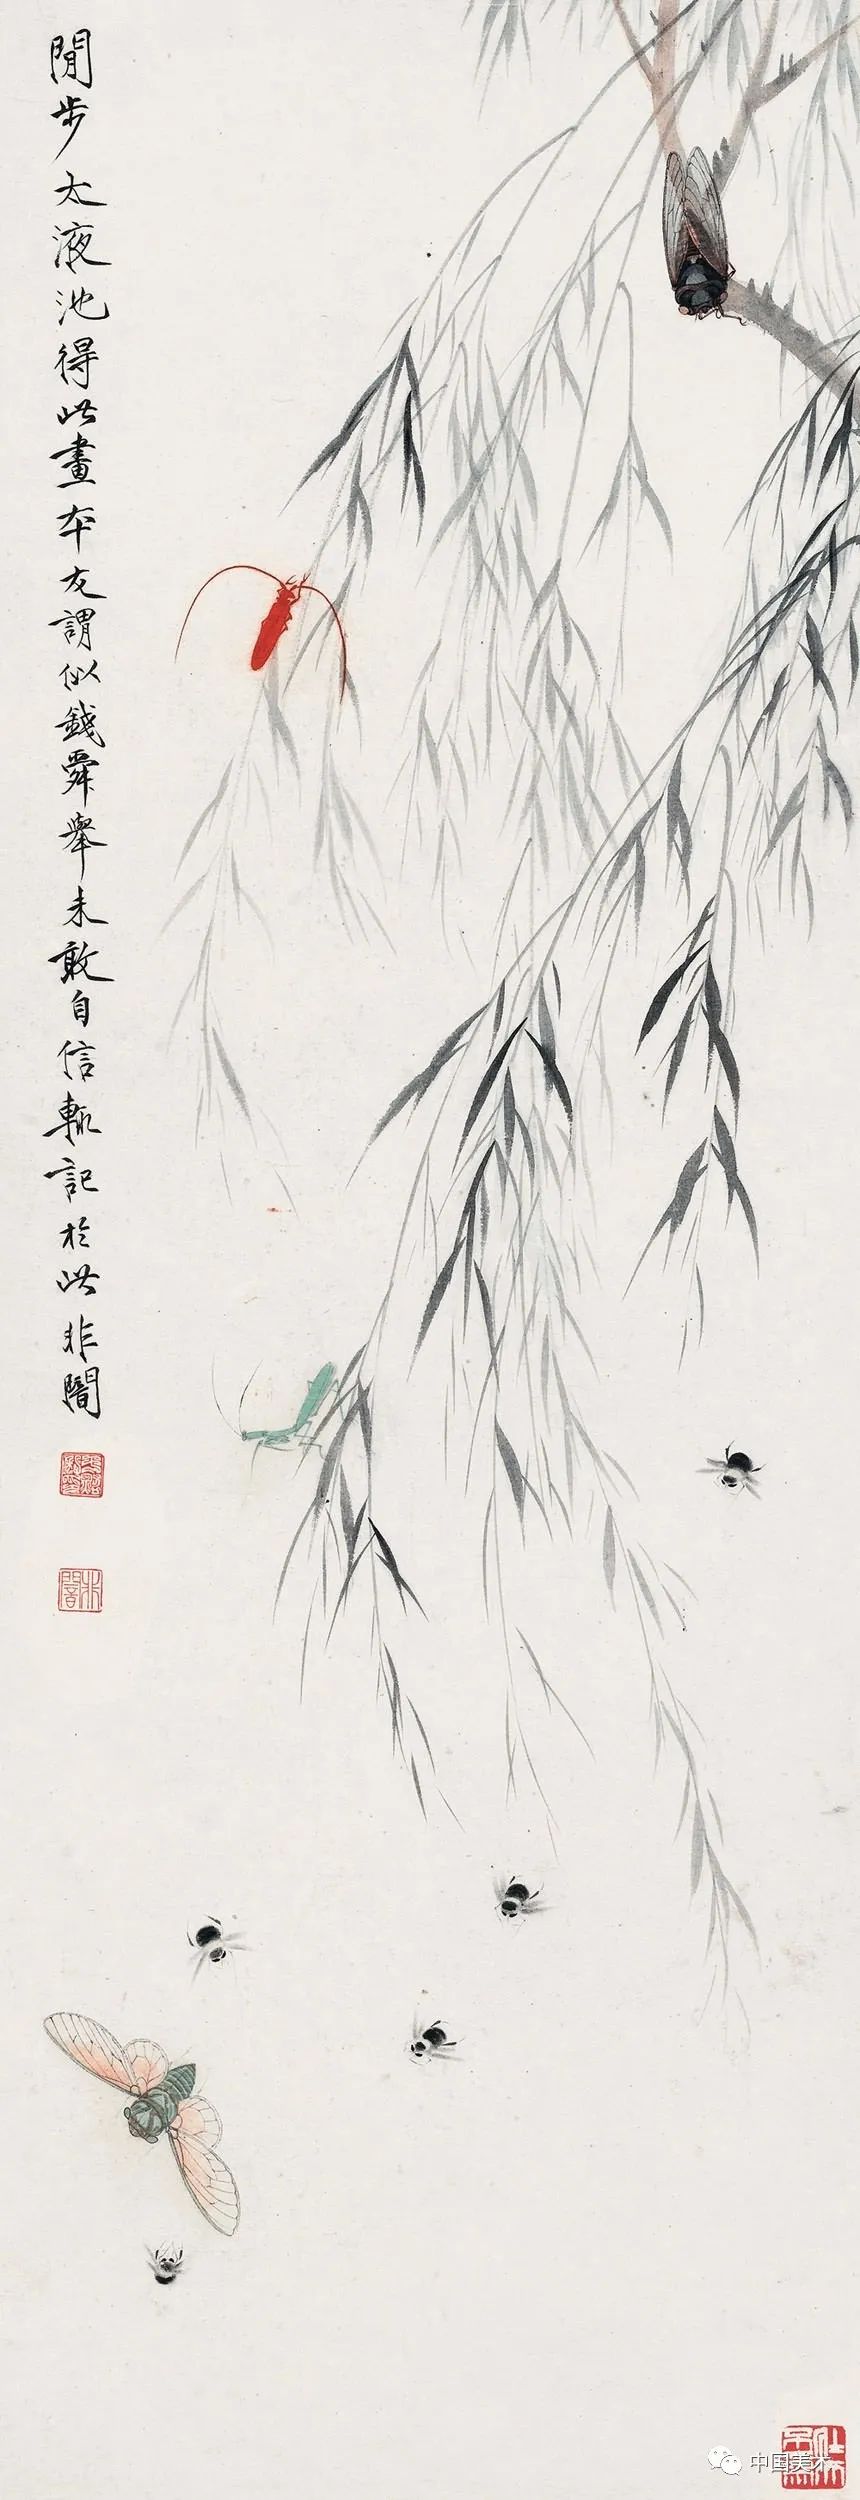 閒步太液池得此畫本友謂似錢舜舉未敢自信輒記於此非闇
中国美术